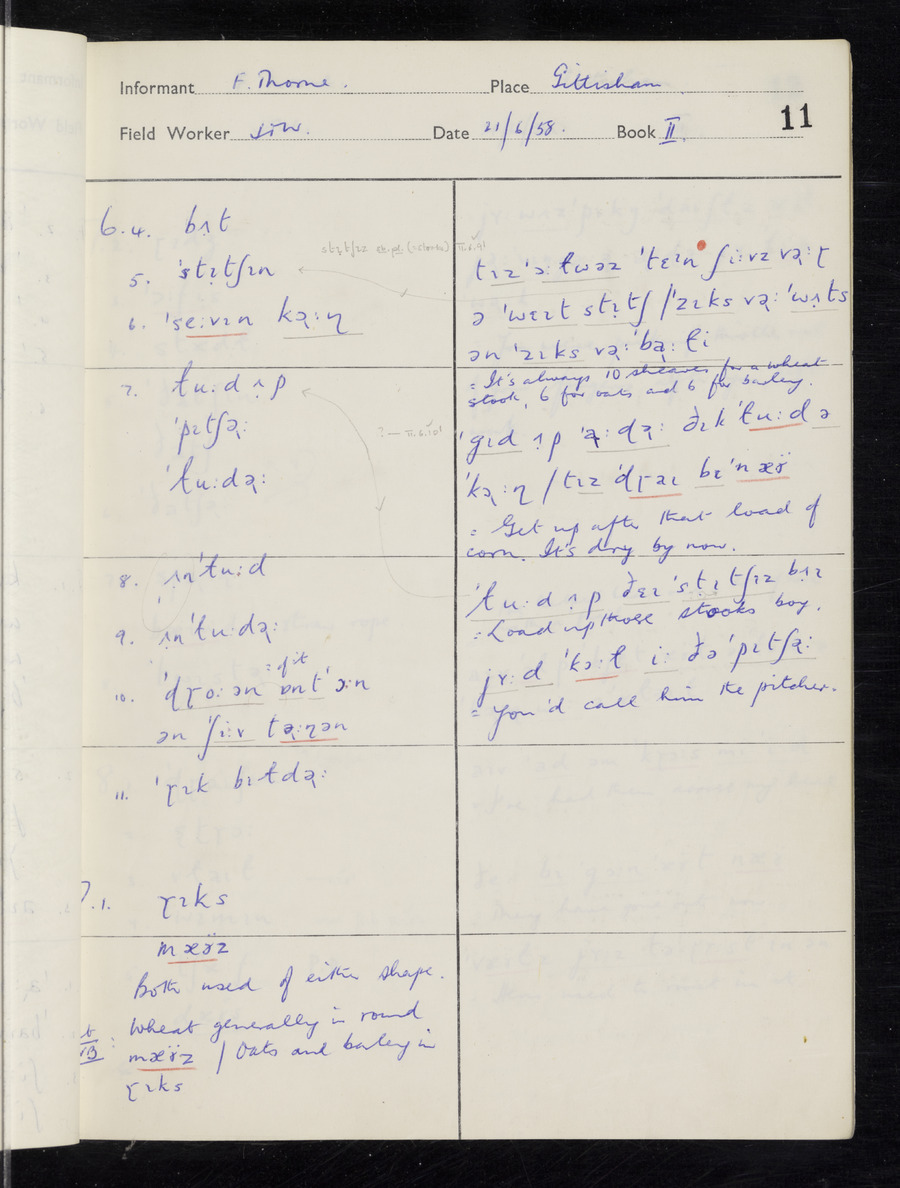 Informant F. Thorne. Place Gittisham
Field Worker JTW. Date 21/6/58. Book II. 11
6.4. bʌ̣t
5. ˈstɪ̣tʃɪn
6. ˈseːvɪn kəːɳ
7. ɫuːd ʌ̣p
ˈpɪtʃəː
ˈɫuːdəː
8. ʌ̣nˈɫuːd
9. ʌ̣nˈɫuːdəː
: of it
10. ˈdɽoːən ɒnt ˈɔːn
ən ˈʃiːv təːɳən
11. ˈɽɪk bɪɫdəː
7.1. ɽɪks
mæʏ̈z
Both used of either shape.
: Wheat generally in round
mæʏ̈z / Oats and barley in
ɽɪks
tɪz ˈɔːɫwəz ˈtɛɪn ʃiːvz vəːɽ
ə ˈwɛɪt stɪ̣tʃ / ˈzɪks vəː ˈwʌ̣ts
ən ˈzɪks vəː ˈbạːɫi
: It's always 10 sheaves for a wheat
stook, 6 for oats and 6 for barley.
ˈgɪd ʌ̣p ˈạːdəː ðɪk ˈɫuːd ə
ˈkəːɳ / tɪz ˈdɽəɪ bɪ ˈnæʏ̈
: Get up after that load of
corn. It's dry by now.
ˈɫuːd ʌ̣p ðɛɪ ˈstɪ̣tʃɪz bʌɪ
: Load up those stooks boy.
jʏːd ˈkɔːɫ iː ðə ˈpɪtʃəː
= You'd call him the pitcher.